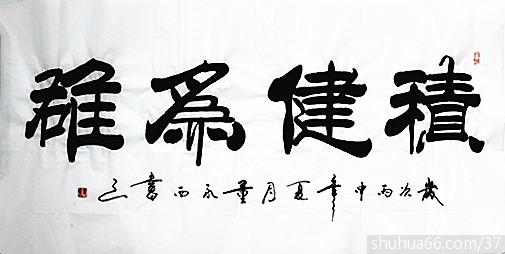 積健為雄
歲次丙申年夏月董永西書
shuhua66.com/37